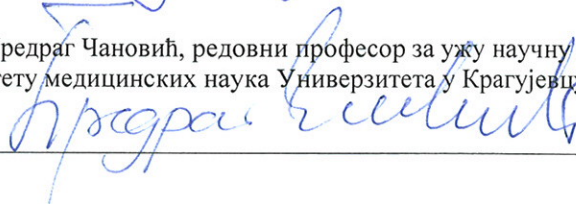 редраг Чановић, редовни професор за ужу научну
ету медицинских наука Универзитета у Крагујевцу
Предраг Чановић